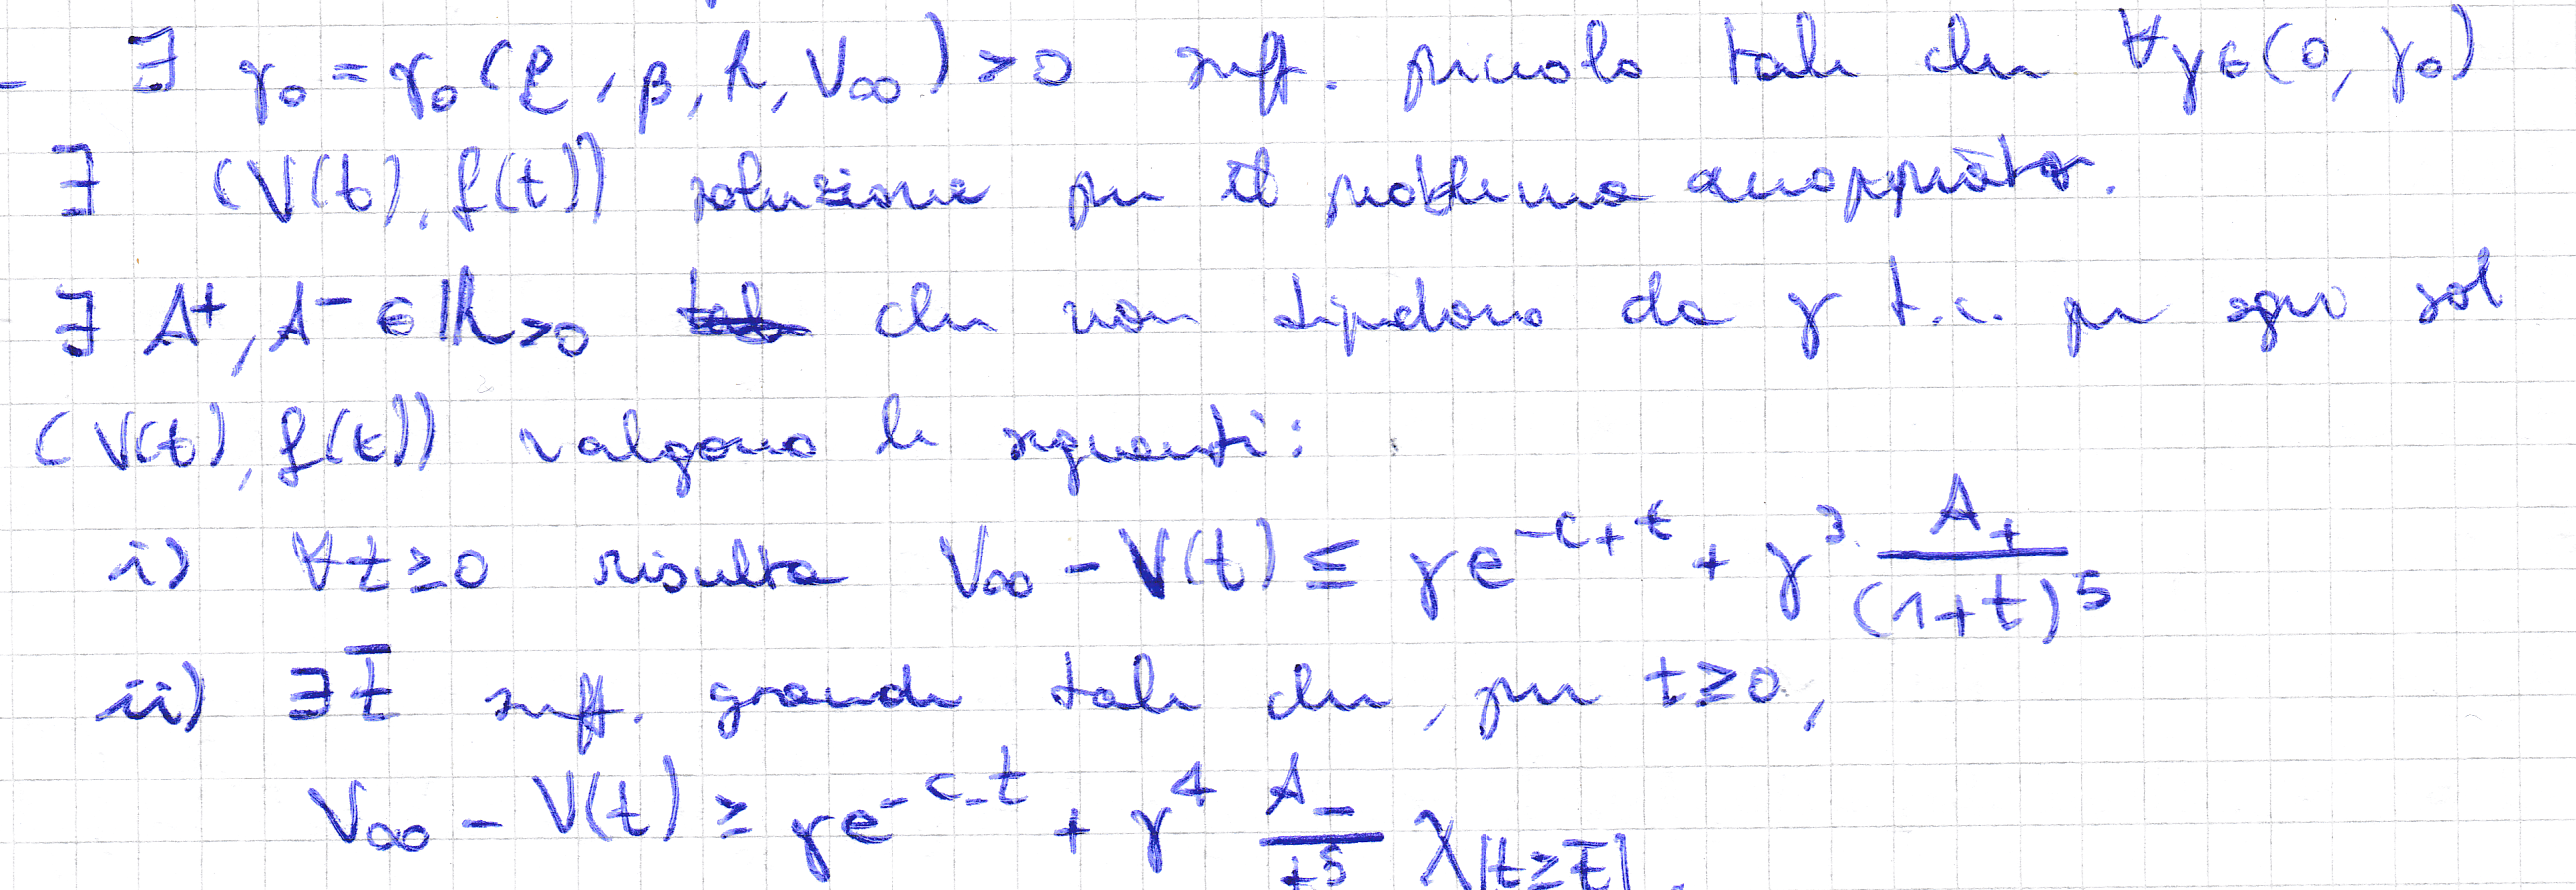 - ∃ γ₀ = γ₀ (ρ, β, h, V∞) > 0 suff. piccolo tale che ∀γ∈(0, γ₀)
∃ (V(t), f(t)) soluzione per il problema accoppiato.
∃ A⁺, A⁻ ∈ ℝ>0 che non dipendono da γ t.c. per ogni sol
(V(t), f(t)) valgono le seguenti:
i) ∀t≥0 risulta V∞ - V(t) ≤ γe^{-C₊t} + γ³ A₊/(1+t)⁵
ii) ∃t̄ suff. grande tale che, per t≥0,
V∞ - V(t) ≥ γe^{-C₋t} + γ⁴ A₋/t⁵ χ{t≥t̄}.